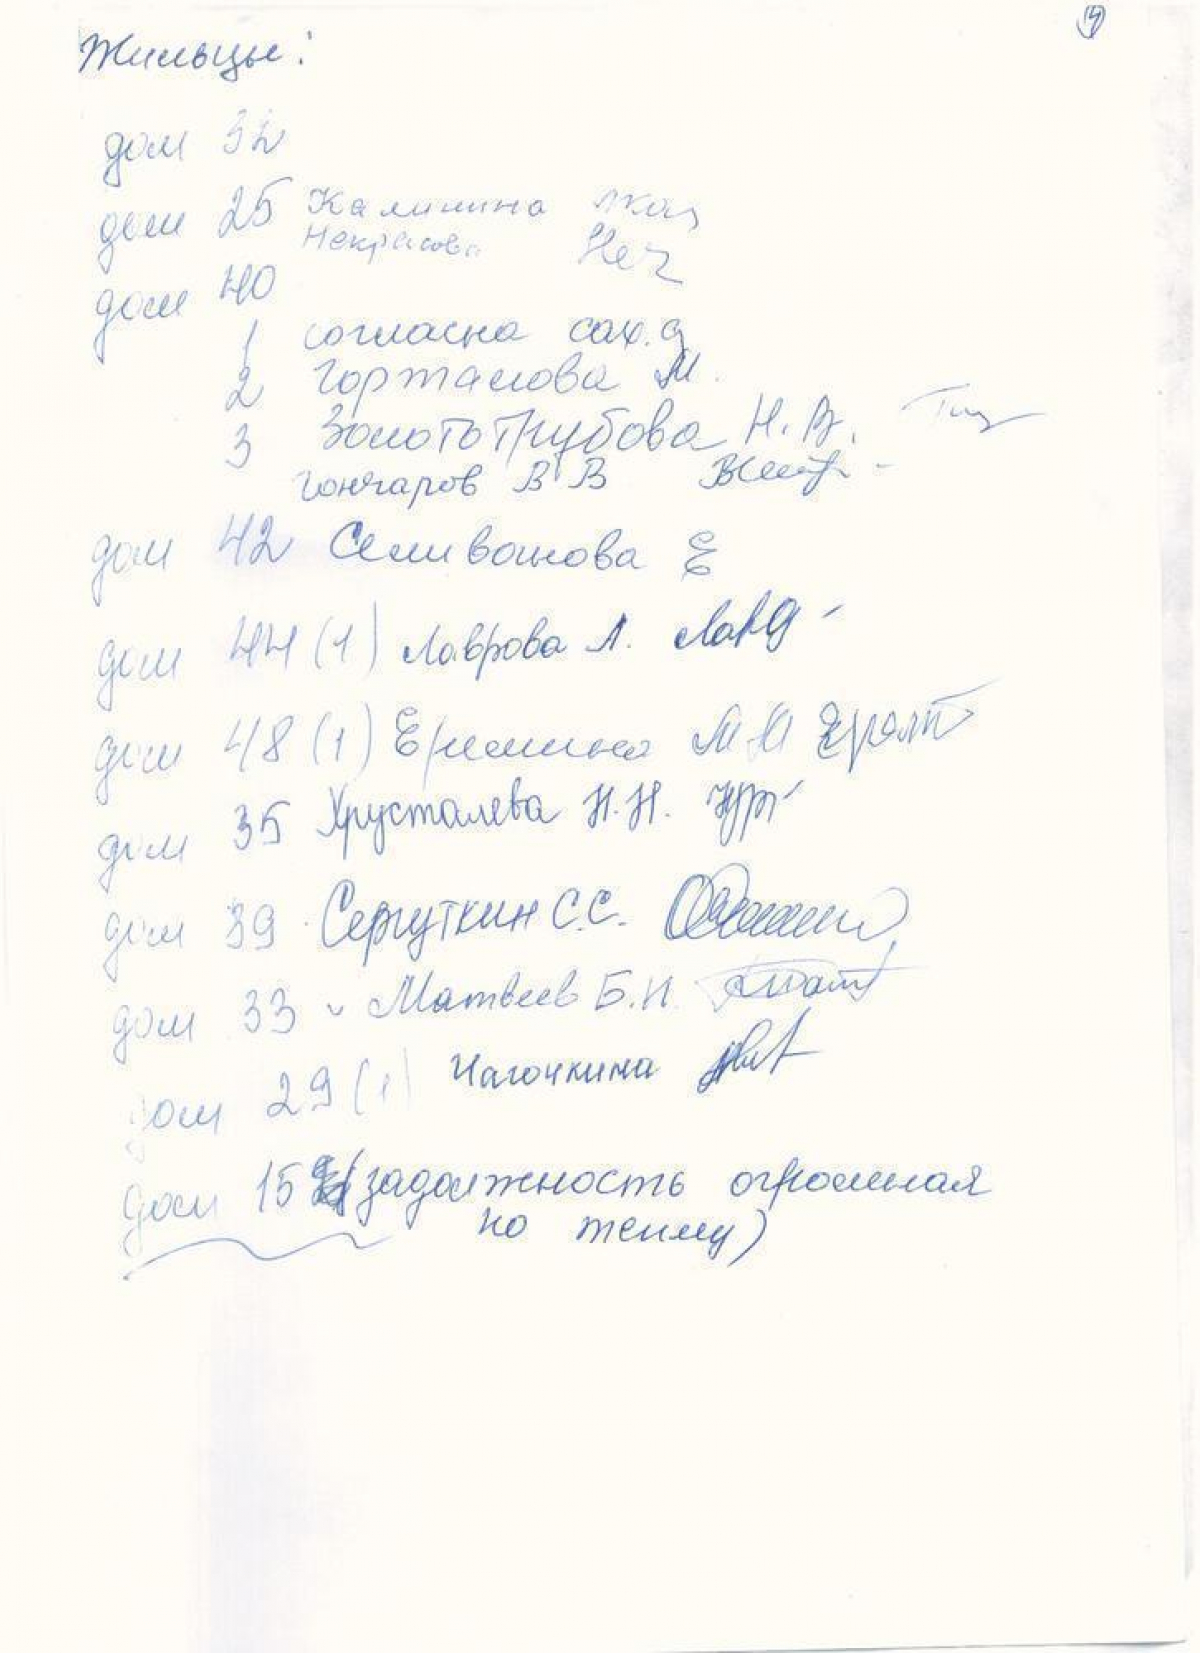 4
Жильцы:
дом 32
дом 25 Калинина
Некрасова Неч
дом 40
1 согласна
2 М.
3 Золототрубова Н.В.
Гончаров В В
дом 42 Селиванова Е
дом 44 (1) Лаврова Л. Лавр
дом 48 (1) Еремина М М
дом 35 Хрусталева Н.Н.
дом 39 Сергуткин С.С.
дом 33 Матвеев Б.Н.
дом 29 (1)
дом 15 (задолжность огромная
по теплу)